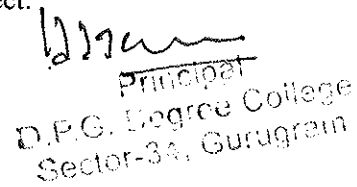 ect.
Principal
D.P.G. Degree College
Sector-34, Gurugram